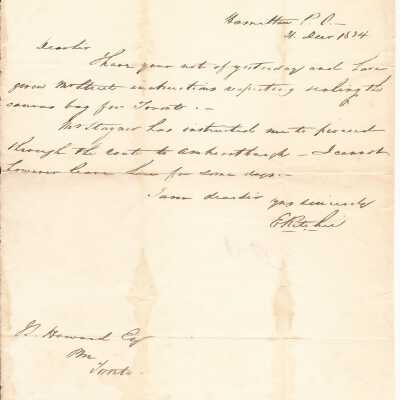 Hamilton P.O. —
31 Decr 1834
Dear Sir
I have your note of yesterday and have
given instructions respecting sealing the
canvas bag for Toronto. —
Mr Stayner has instructed me to proceed
through the route to Amherstburgh — I cannot
however leave here for some days. —
I am dear sir yrs sincerely
E Ritchie
J. Howard Esq
PM
Toronto.